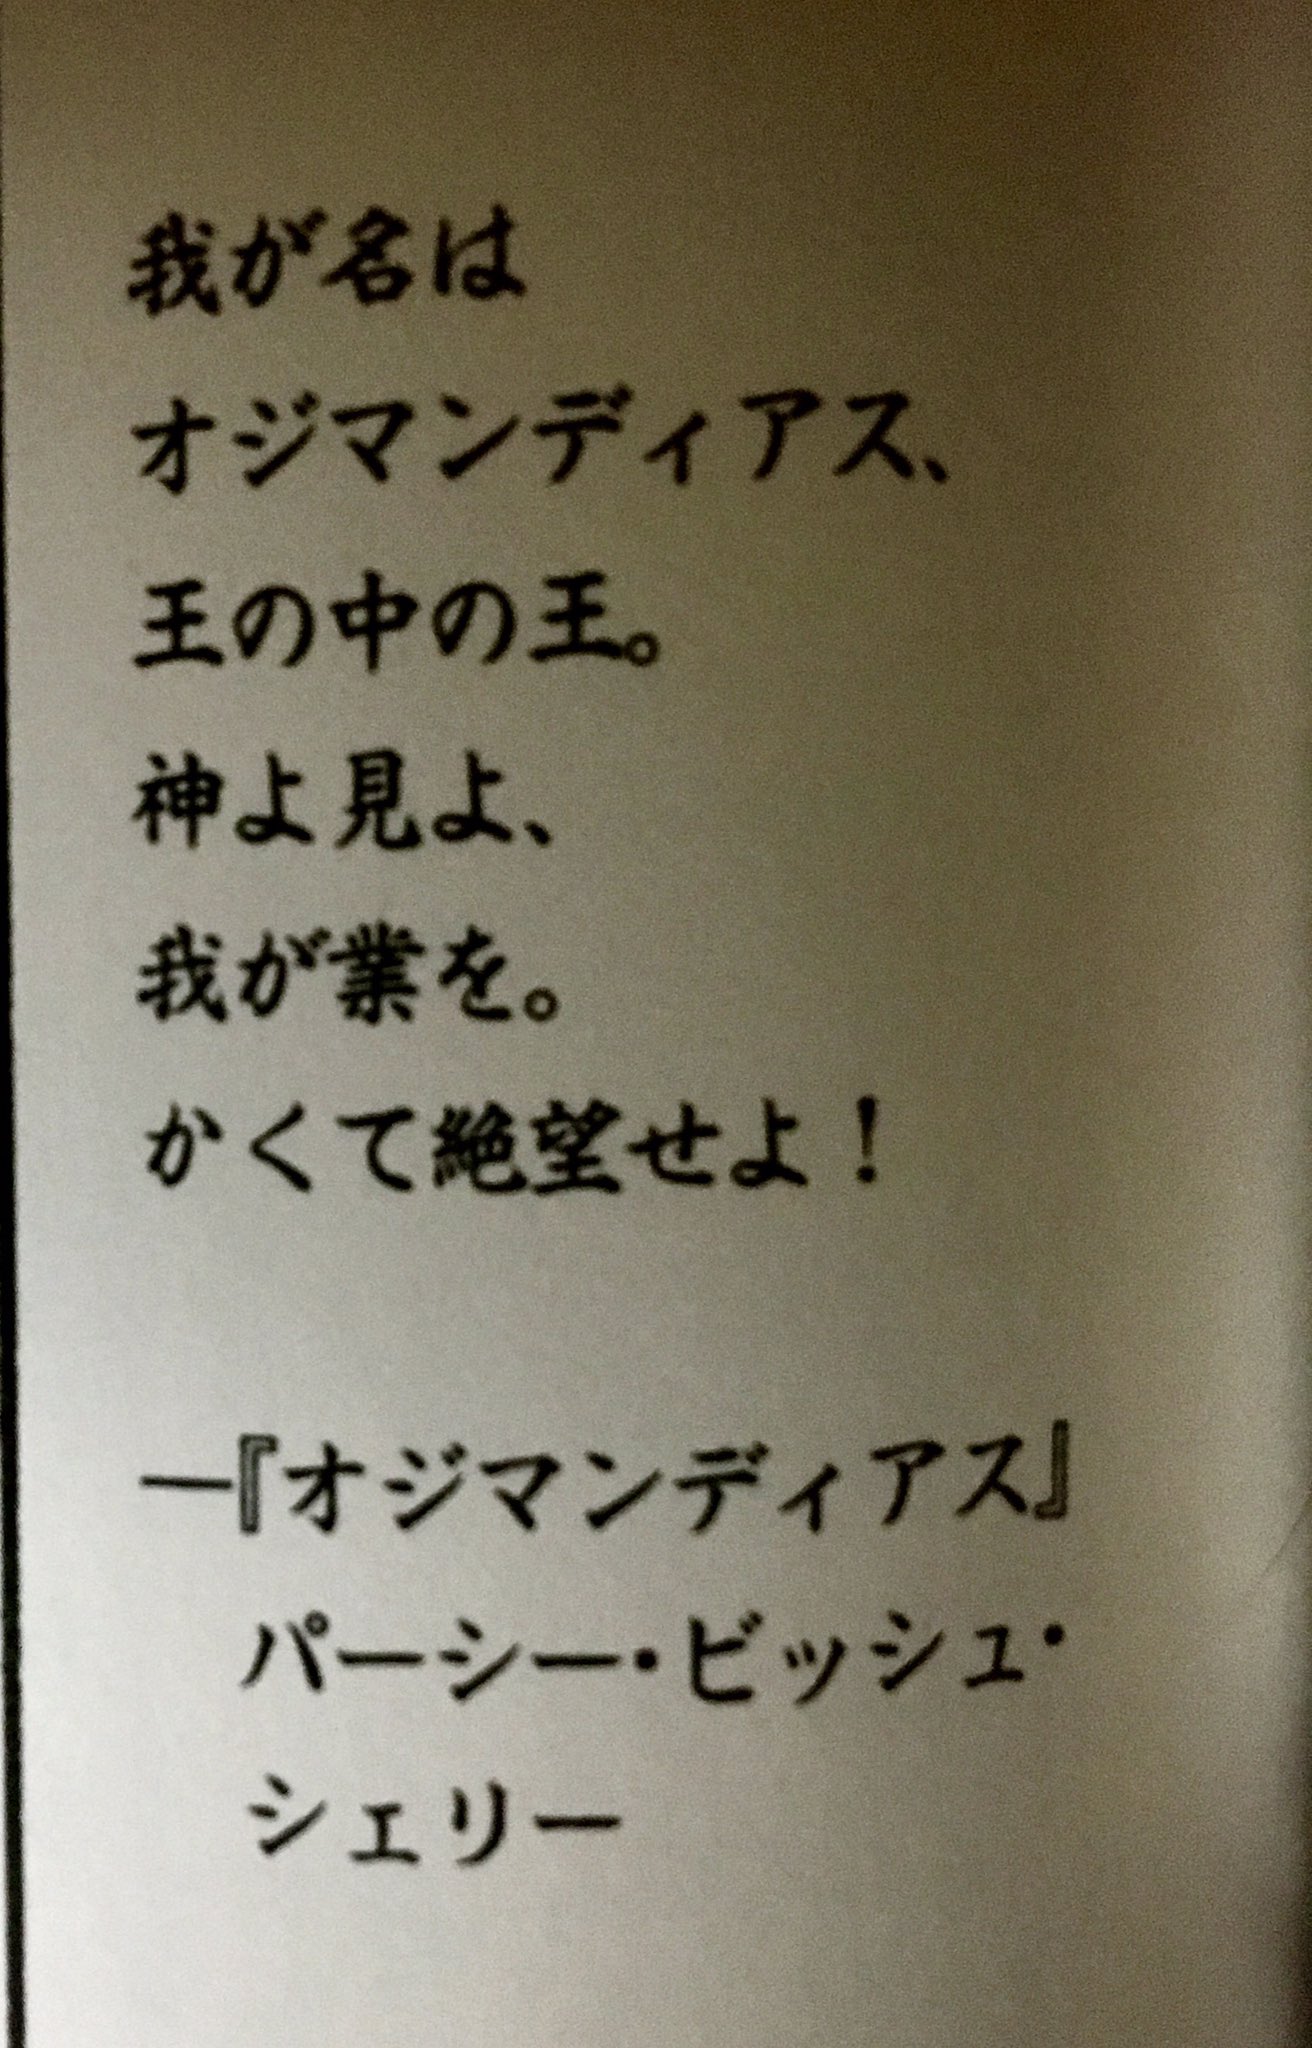 我が名は
オジマンディアス、
王の中の王。
神よ見よ、
我が業を。
かくて絶望せよ！
―『オジマンディアス』
パーシー・ビッシュ・
シェリー